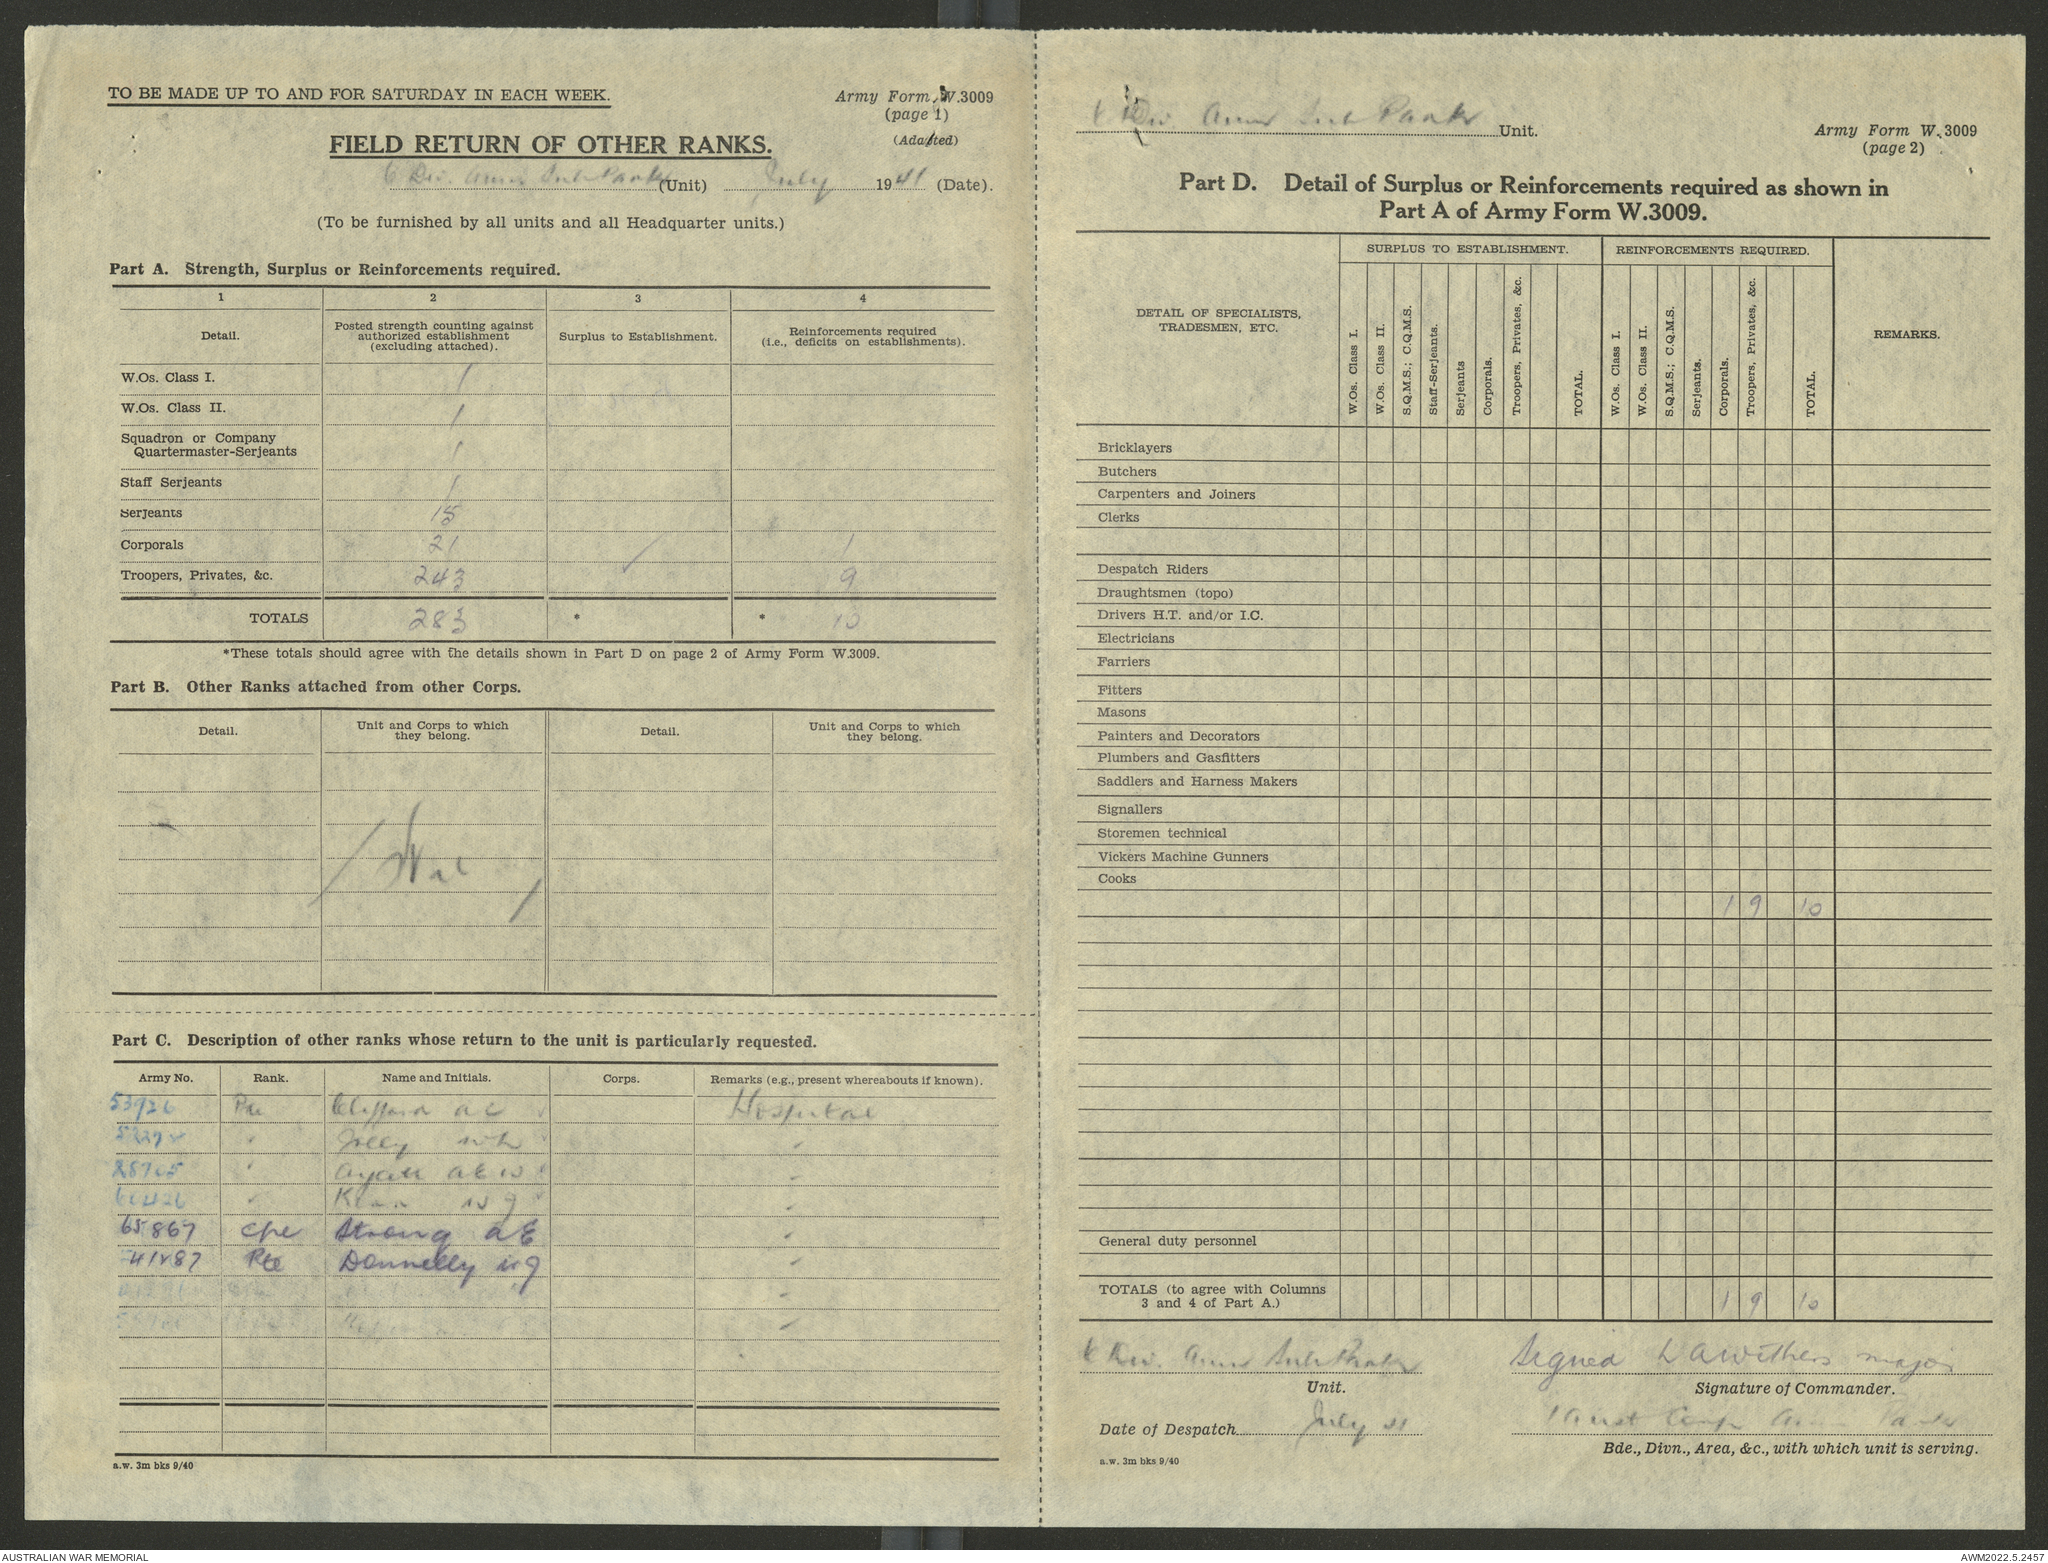 TO BE MADE UP TO AND FOR SATURDAY IN EACH WEEK.
Army Form W.3009
(page 1)
(Adapted)
FIELD RETURN OF OTHER RANKS.
6 Div. Amm Sub Park (Unit) July 1941 (Date).
(To be furnished by all units and all Headquarter units.)
Part A. Strength, Surplus or Reinforcements required.
1 2 3 4
Detail. Posted strength counting against authorized establishment (excluding attached). Surplus to Establishment. Reinforcements required (i.e., deficits on establishments).
W.Os. Class I. 1
W.Os. Class II. 1
Squadron or Company
Quartermaster-Serjeants 1
Staff Serjeants 1
Serjeants 15
Corporals 21 1
Troopers, Privates, &c. 243 ✓ 9
TOTALS 283 * * 10
*These totals should agree with the details shown in Part D on page 2 of Army Form W.3009.
Part B. Other Ranks attached from other Corps.
Detail. Unit and Corps to which they belong. Detail. Unit and Corps to which they belong.
Part C. Description of other ranks whose return to the unit is particularly requested.
Army No. Rank. Name and Initials. Corps. Remarks (e.g., present whereabouts if known).
53926 Pte Clifford A C Hospital
" Jolly "
" A E W "
" "
65867 Cpl Strong A E "
Pte Donnelly "
"
"
a.w. 3m bks 9/40
6 Div Amm Sub Park Unit.
Army Form W.3009
(page 2)
Part D. Detail of Surplus or Reinforcements required as shown in
Part A of Army Form W.3009.
DETAIL OF SPECIALISTS, TRADESMEN, ETC. SURPLUS TO ESTABLISHMENT. REINFORCEMENTS REQUIRED. REMARKS.
W.Os. Class I. W.Os. Class II. S.Q.M.S.; C.Q.M.S. Staff-Serjeants. Serjeants Corporals. Troopers, Privates, &c. TOTAL. W.Os. Class I. W.Os. Class II. S.Q.M.S.; C.Q.M.S. Serjeants. Corporals. Troopers, Privates, &c. TOTAL.
Bricklayers
Butchers
Carpenters and Joiners
Clerks
Despatch Riders
Draughtsmen (topo)
Drivers H.T. and/or I.C.
Electricians
Farriers
Fitters
Masons
Painters and Decorators
Plumbers and Gasfitters
Saddlers and Harness Makers
Signallers
Storemen technical
Vickers Machine Gunners
Cooks
1 9 10
General duty personnel
TOTALS (to agree with Columns
3 and 4 of Part A.) 1 9 10
6 Div. Amm Sub Park
Unit.
Signed Withers Major
Signature of Commander.
Date of Despatch July 41
1 Aust Corps Amm Park
Bde., Divn., Area, &c., with which unit is serving.
a.w. 3m bks 9/40
AUSTRALIAN WAR MEMORIAL
AWM2022.5.2457